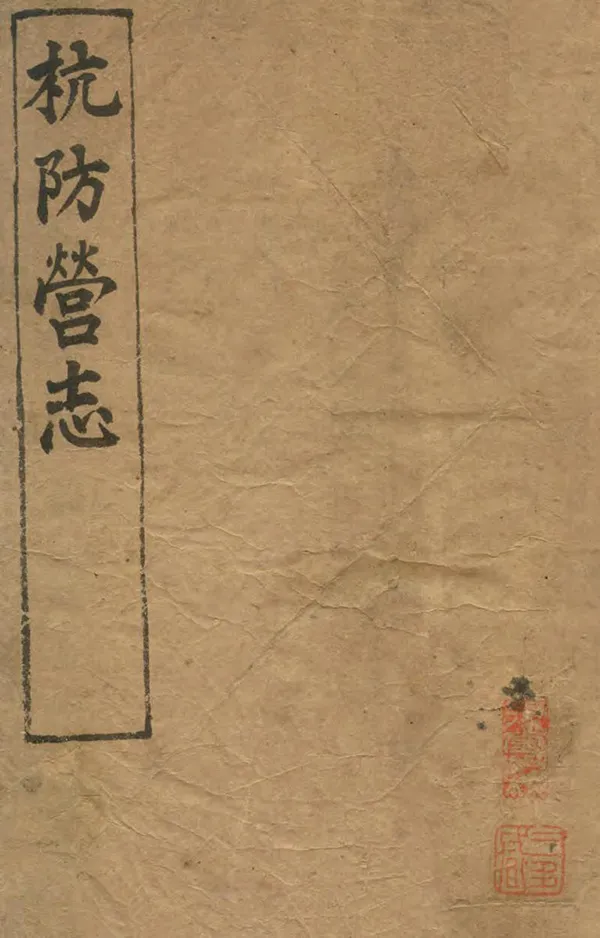 杭防營志